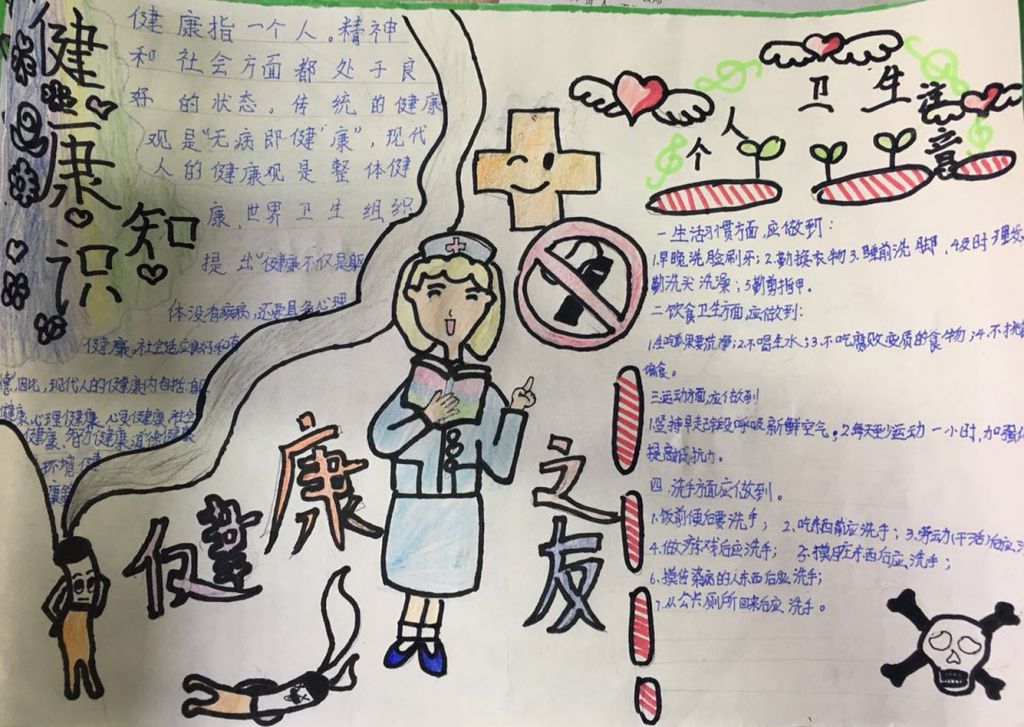 健康知识
健康指一个人。精神
和社会方面都处于良
好的状态。传统的健康
观是"无病即健康",现代
人的健康观是整体健
康,世界卫生组织
提出"健康不仅是躯
体没有疾病,还要具备心理
健康、社会适应良好和有
德,因此,现代人的健康内包括:
健康、心理健康、心灵健康、社会
健康、智力健康、道德健康
环境健
康
健康之友
个人卫生注意
一生活习惯方面,应做到:
1.早晚洗脸刷牙;2.勤换衣物3.睡前洗脚,4及时理发
勤洗头洗澡;5勤剪指甲。
二饮食卫生方面,应做到:
1.生吃瓜果要洗净;2不喝生水;3.不吃腐败变质的食物;4.不挑
偏食。
三运动方面应做到
1.坚持早起 呼吸新鲜空气。2每天至少运动一小时,加强
提高抵抗力。
四.洗手方面应做到。
1.饭前便后要洗手; 2.吃东西前应洗手;3.劳动(干活)后应
4.做游戏后应洗手; 5.摸脏东西后应洗手;
6.摸传染病的人东西后应洗手;
7.从公共厕所回来后应洗手。